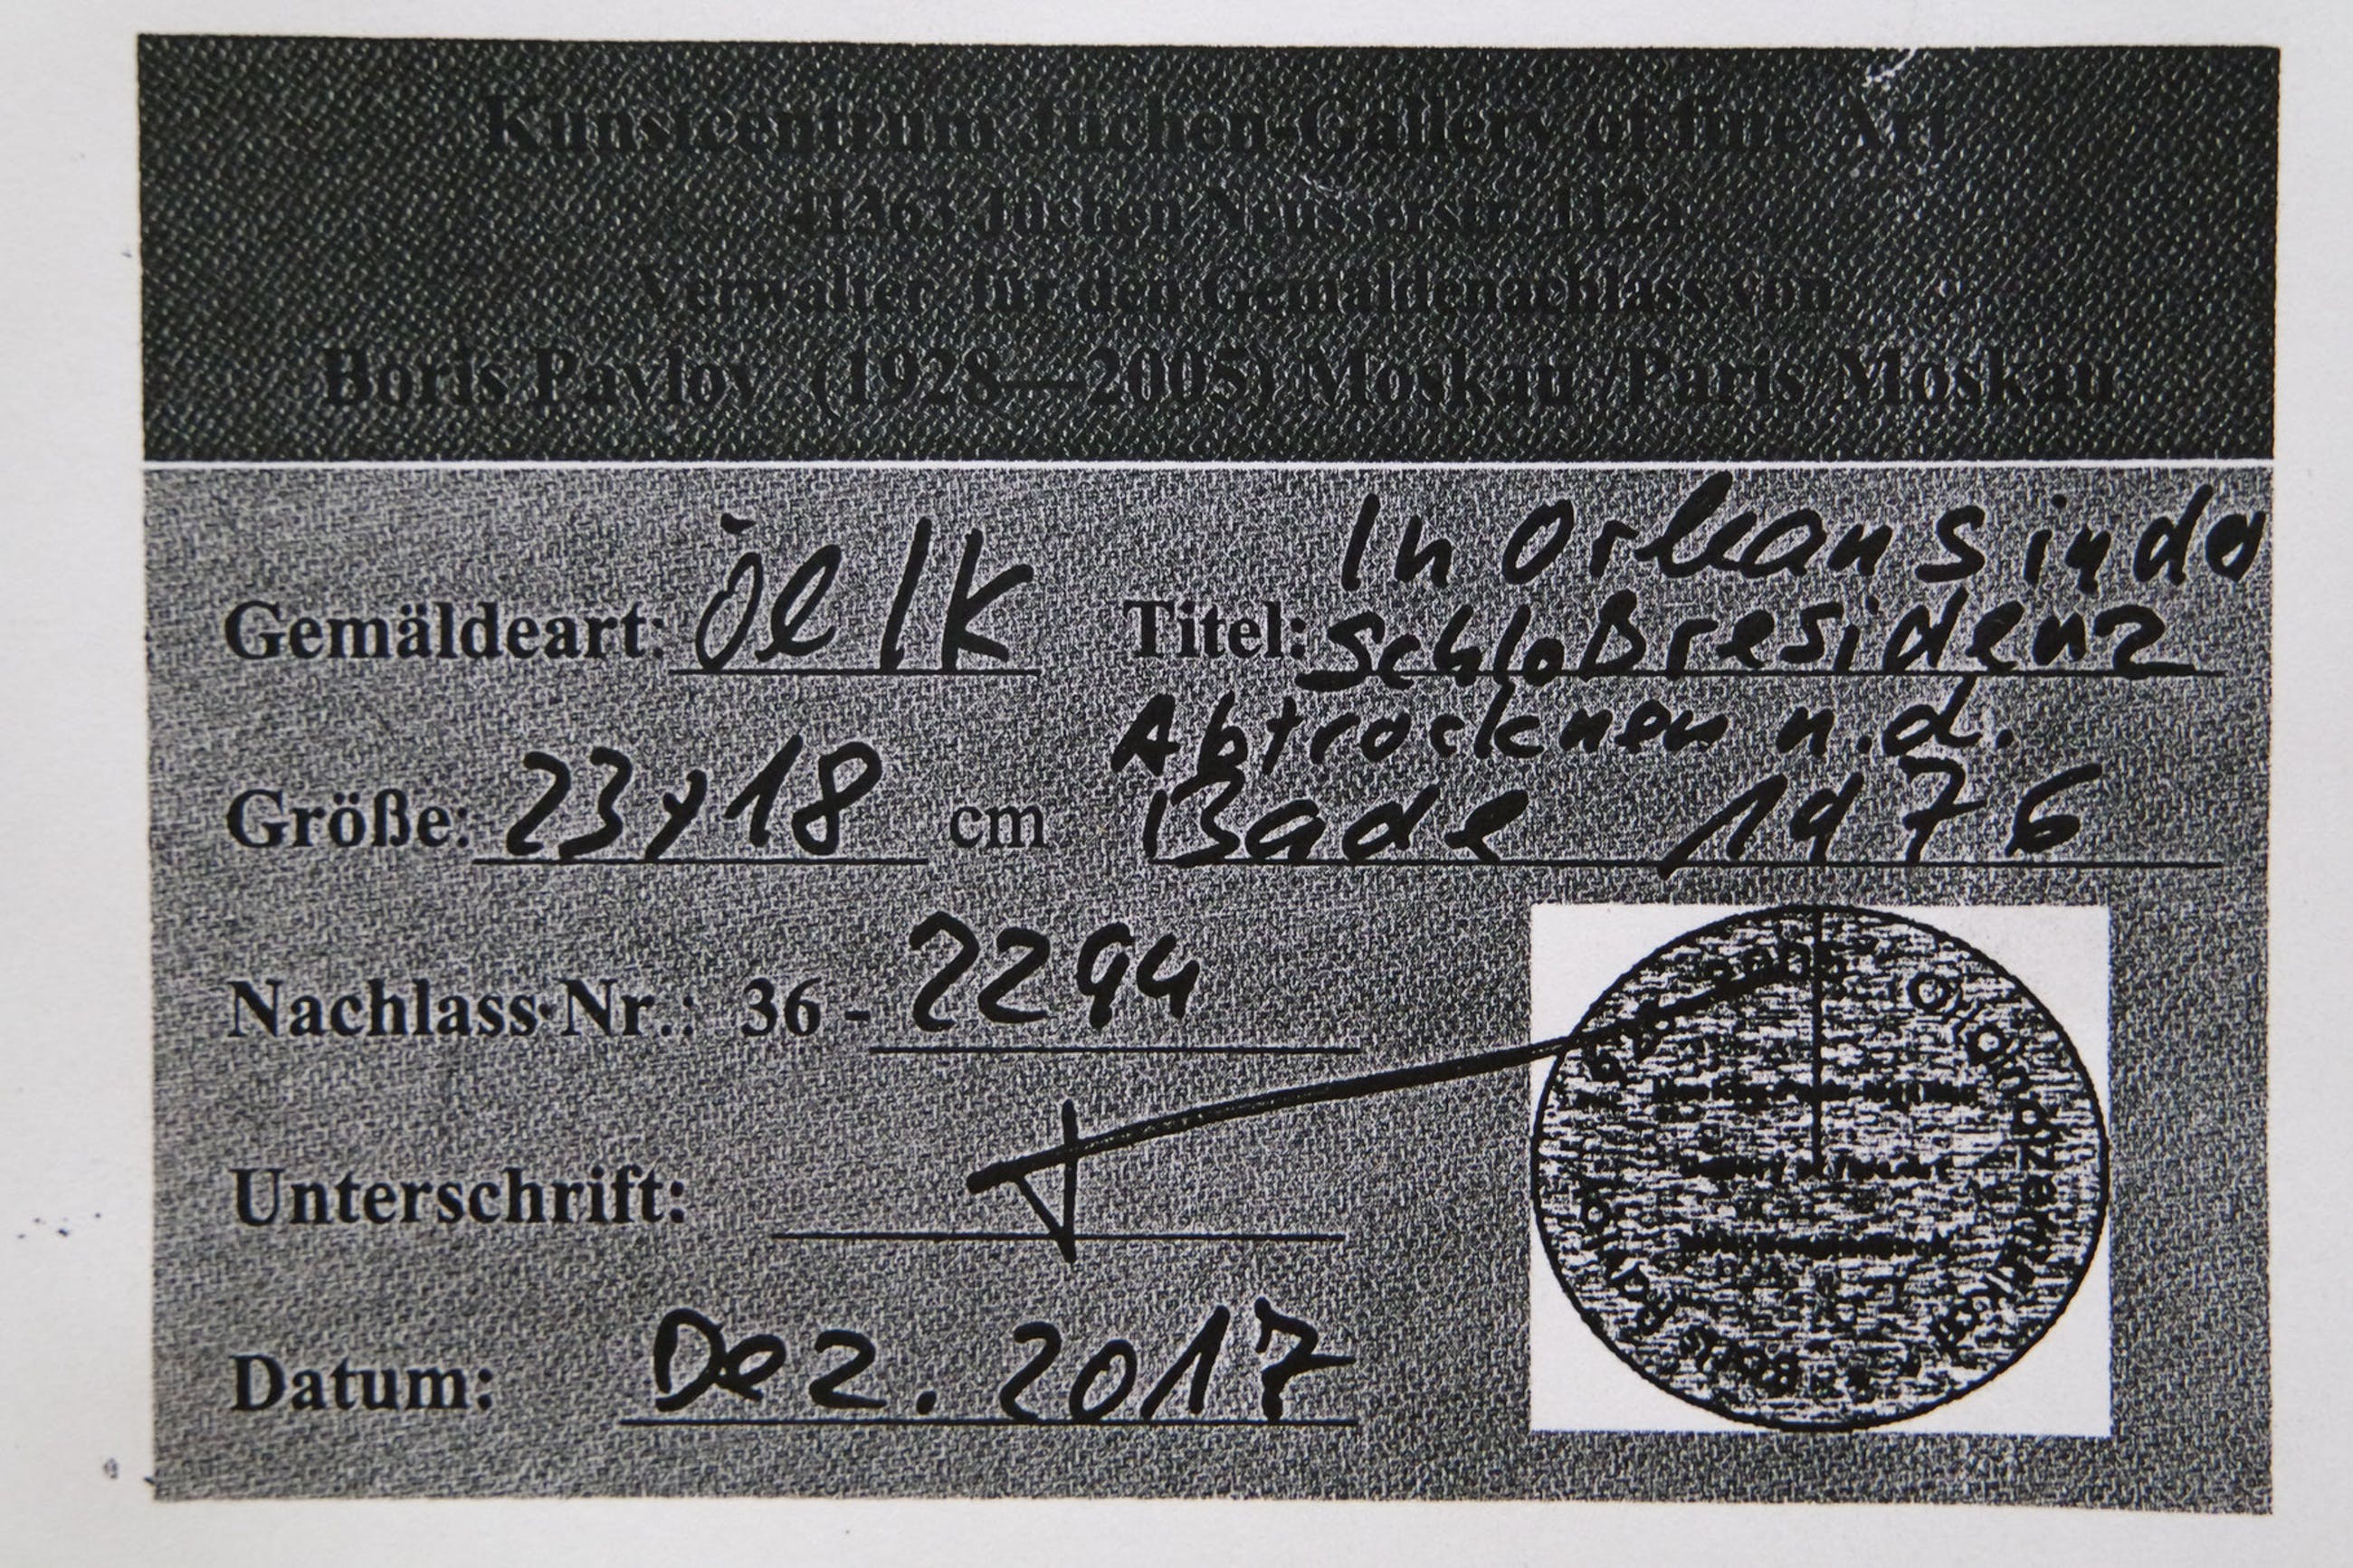 Kunstcentrum Jüchen-Gallery of fine Art
41363 Jüchen, Neusserstr. 112a
Verwalter für den Gemäldenachlass von
Boris Pavlov (1928—2005) Moskau/Paris/Moskau
Gemäldeart: Öl/K Titel: In Orleans in do
Schloßresidenz
Abtrocknen n.d.
Größe: 23x18 cm Bade 1976
Nachlass-Nr.: 36 - 2294
Unterschrift:
Datum: Dez. 2017
Boris Pavlov 1928-2005